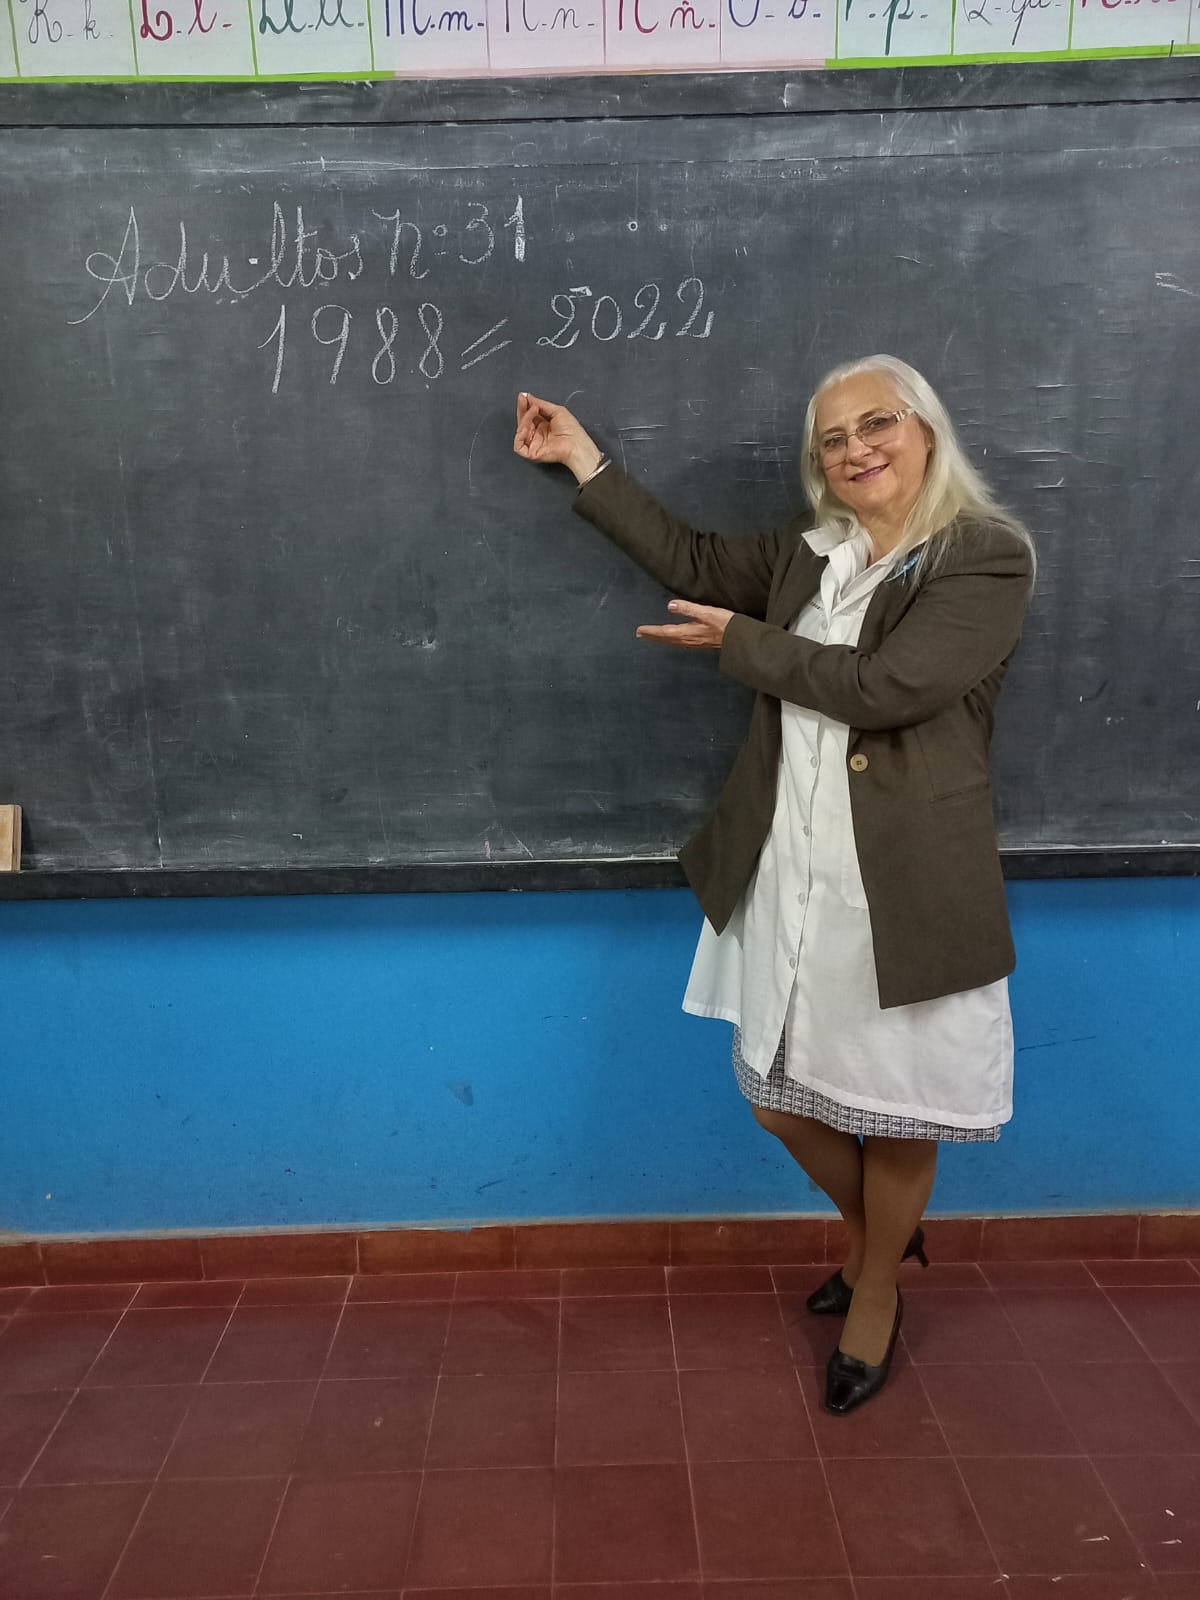 K. k. L. l. Ll. ll. M. m. N. n. Ñ ñ. O. o. P. p. Q. qu.
Adultos n°31
1988 = 2022